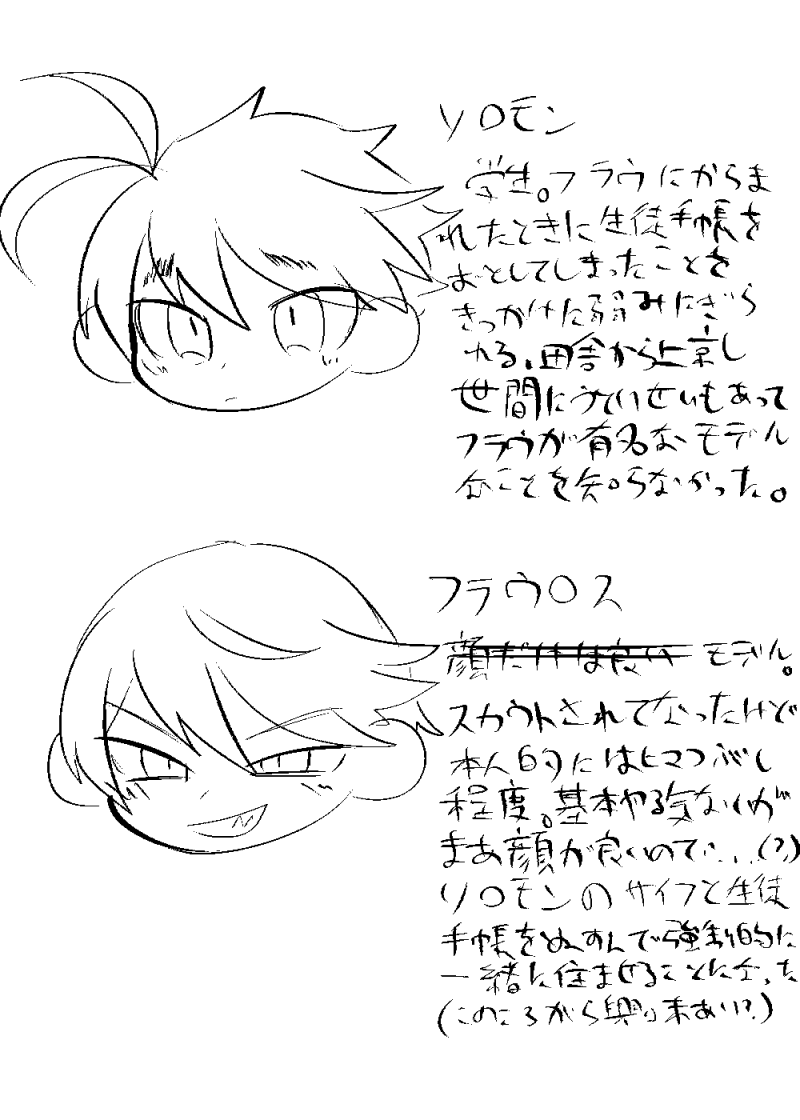 ソロモン
学生。フラウにからま
れたときに生徒手帳を
おとしてしまったことを
きっかけに弱みにぎら
れる、田舎から上京し
世間にうといせいもあって
フラウが有名なモデル
なことを知らなかった。
フラウロス
顔だけは良い モデル。
スカウトされてなったけど
本人的にはヒマつぶし
程度。基本やる気ないが
まあ顔が良いので…(?)
ソロモンのサイフと生徒
手帳をぬすんで強制的に
一緒に住ませることになった
(このころから興味あり?)